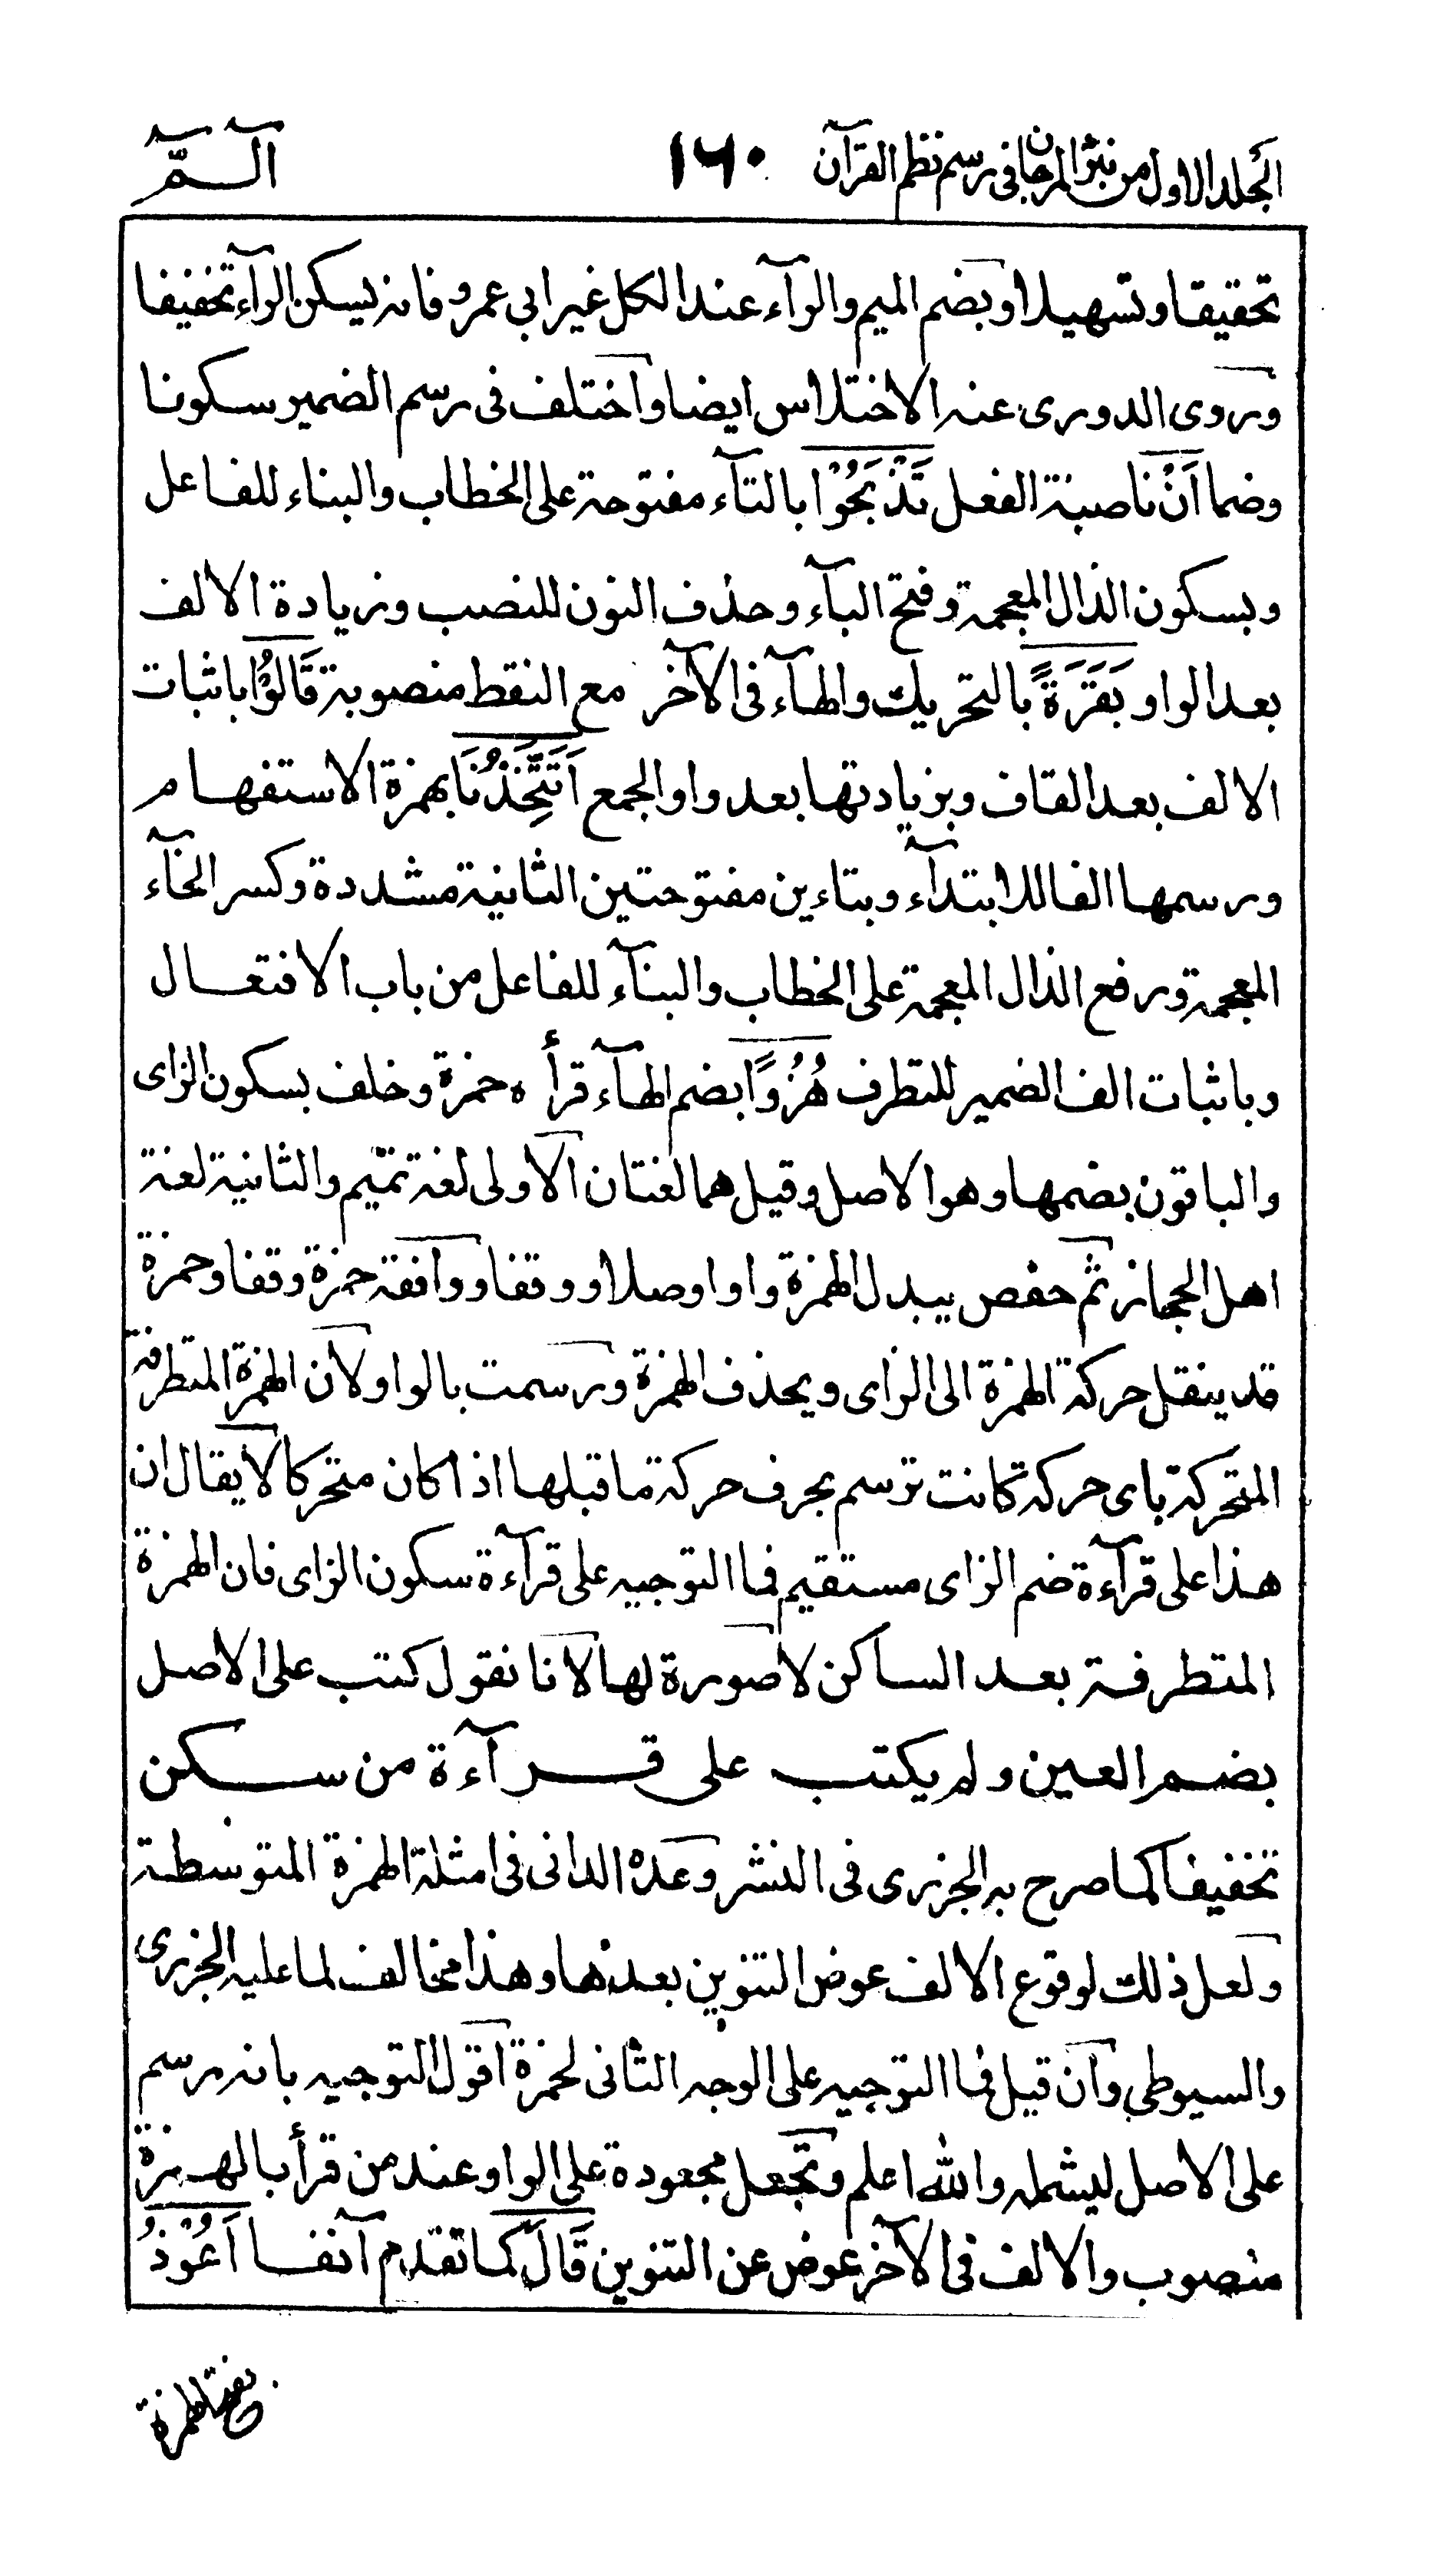 المجلد الاول من نثر المرجان فى رسم نظم القرآن ١٦٠ الٓـمّٓ
تحقيقا وتسهيلا وبضم الميم والرآء عند الكل غير ابى عمرو فانه يسكن الرآء تخفيفا
وروى الدورى عنه الاختلاس ايضا واختلف فى رسم الضمير سكونا
وضما اَنْ ناصبة الفعل تَذْبَحُوْا بالتآء مفتوحة على الخطاب والبناء للفاعل
وبسكون الذال المعجمة وفتح البآء وحذف النون للنصب وزيادة الالف
بعد الواو بَقَرَةً بالتحريك والهآء فى الآخر مع النقط منصوبة قَالُوْٓا باثبات
الالف بعد القاف وبزيادتها بعد واو الجمع اَتَتَّخِذُنَا بهمزة الاستفهام
ورسمها الفا للابتدآء وبتاءين مفتوحتين الثانية مشددة وكسر الخآء
المعجمة ورفع الذال المعجمة على الخطاب والبنآء للفاعل من باب الافتعال
وباثبات الف الضمير للتطرف هُزُوًا بضم الهآء قرأه حمزة وخلف بسكون الزاى
والباقون بضمها وهو الاصل وقيل هما لغتان الاولى لغة تميم والثانية لغة
اهل الحجاز ثم حفص يبدل الهمزة واوا وصلا ووقفا ووافقه حمزة وقفا وحمزة
قد ينقل حركة الهمزة الى الزاى ويحذف الهمزة ورسمت بالواو لان الهمزة المتطرفة
المتحركة باى حركة كانت ترسم بحرف حركة ما قبلها اذا كان متحركا لا يقال ان
هذا على قرآءة ضم الزاى مستقيم فما التوجيه على قرآءة سكون الزاى فان الهمزة
المتطرفة بعد الساكن لا صورة لها لانا نقول كتب على الاصل
بضم العين ولم يكتب على قرآءة من سكن
تخفيفا كما صرح به الجزرى فى النشر وعده الدانى فى امثلة الهمزة المتوسطة
ولعل ذلك لوقوع الالف عوض التنوين بعدها وهذا مخالف لما عليه الجزرى
والسيوطى وان قيل فما التوجيه على الوجه الثانى لحمزة اقول التوجيه بانه رسم
على الاصل ليشمله والله اعلم وتجعل مجعودة على الواو عند من قرأ بالهمزة
منصوب والالف فى الآخر عوض عن التنوين قَالَ كما تقدم آنفا اَعُوْذُ
بفتح الهمزة